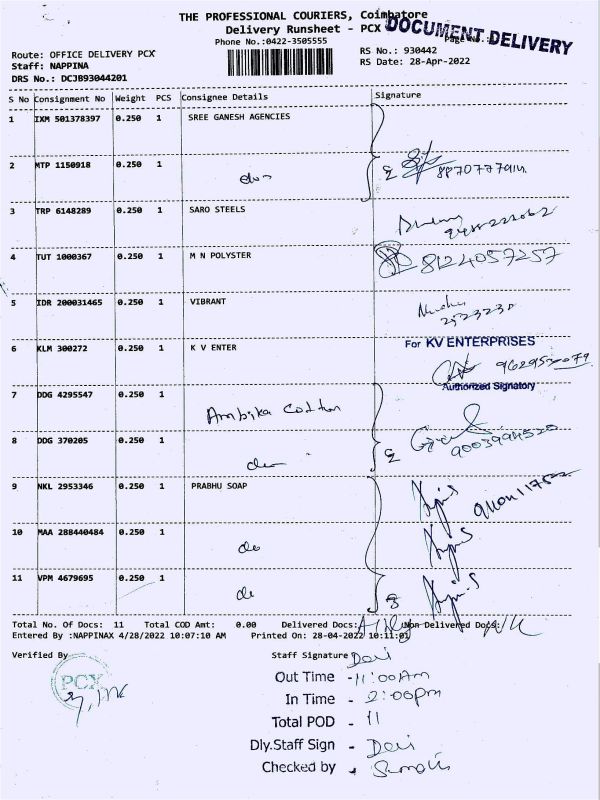 THE PROFESSIONAL COURIERS, Coimbatore
Delivery Runsheet - PCX
DOCUMENT DELIVERY
Phone No.:0422-3505555
Route: OFFICE DELIVERY PCX
RS No.: 930442
Staff: NAPPINA
RS Date: 28-Apr-2022
DRS No.: DCJB93044201
S No Consignment No Weight PCS Consignee Details Signature
1 IXM 501378397 0.250 1 SREE GANESH AGENCIES
2 MTP 1150918 0.250 1 do
3 TRP 6148289 0.250 1 SARO STEELS
4 TUT 1000367 0.250 1 M N POLYSTER 8124057257
5 IDR 200031465 0.250 1 VIBRANT
6 KLM 300272 0.250 1 K V ENTER
For KV ENTERPRISES
Authorized Signatory
7 DDG 4295547 0.250 1 Ambika Cotton
8 DDG 370205 0.250 1 do
9 NKL 2953346 0.250 1 PRABHU SOAP
10 MAA 288440484 0.250 1 do
11 VPM 4679695 0.250 1 do
Total No. Of Docs: 11 Total COD Amt: 0.00 Delivered Docs: Non Delivered Docs:
Entered By :NAPPINAX 4/28/2022 10:07:10 AM Printed On: 28-04-2022 10:11:01
Verified By
Staff Signature
PCX
Out Time - 11:00Am
In Time - 2:00pm
Total POD - 11
Dly.Staff Sign -
Checked by -